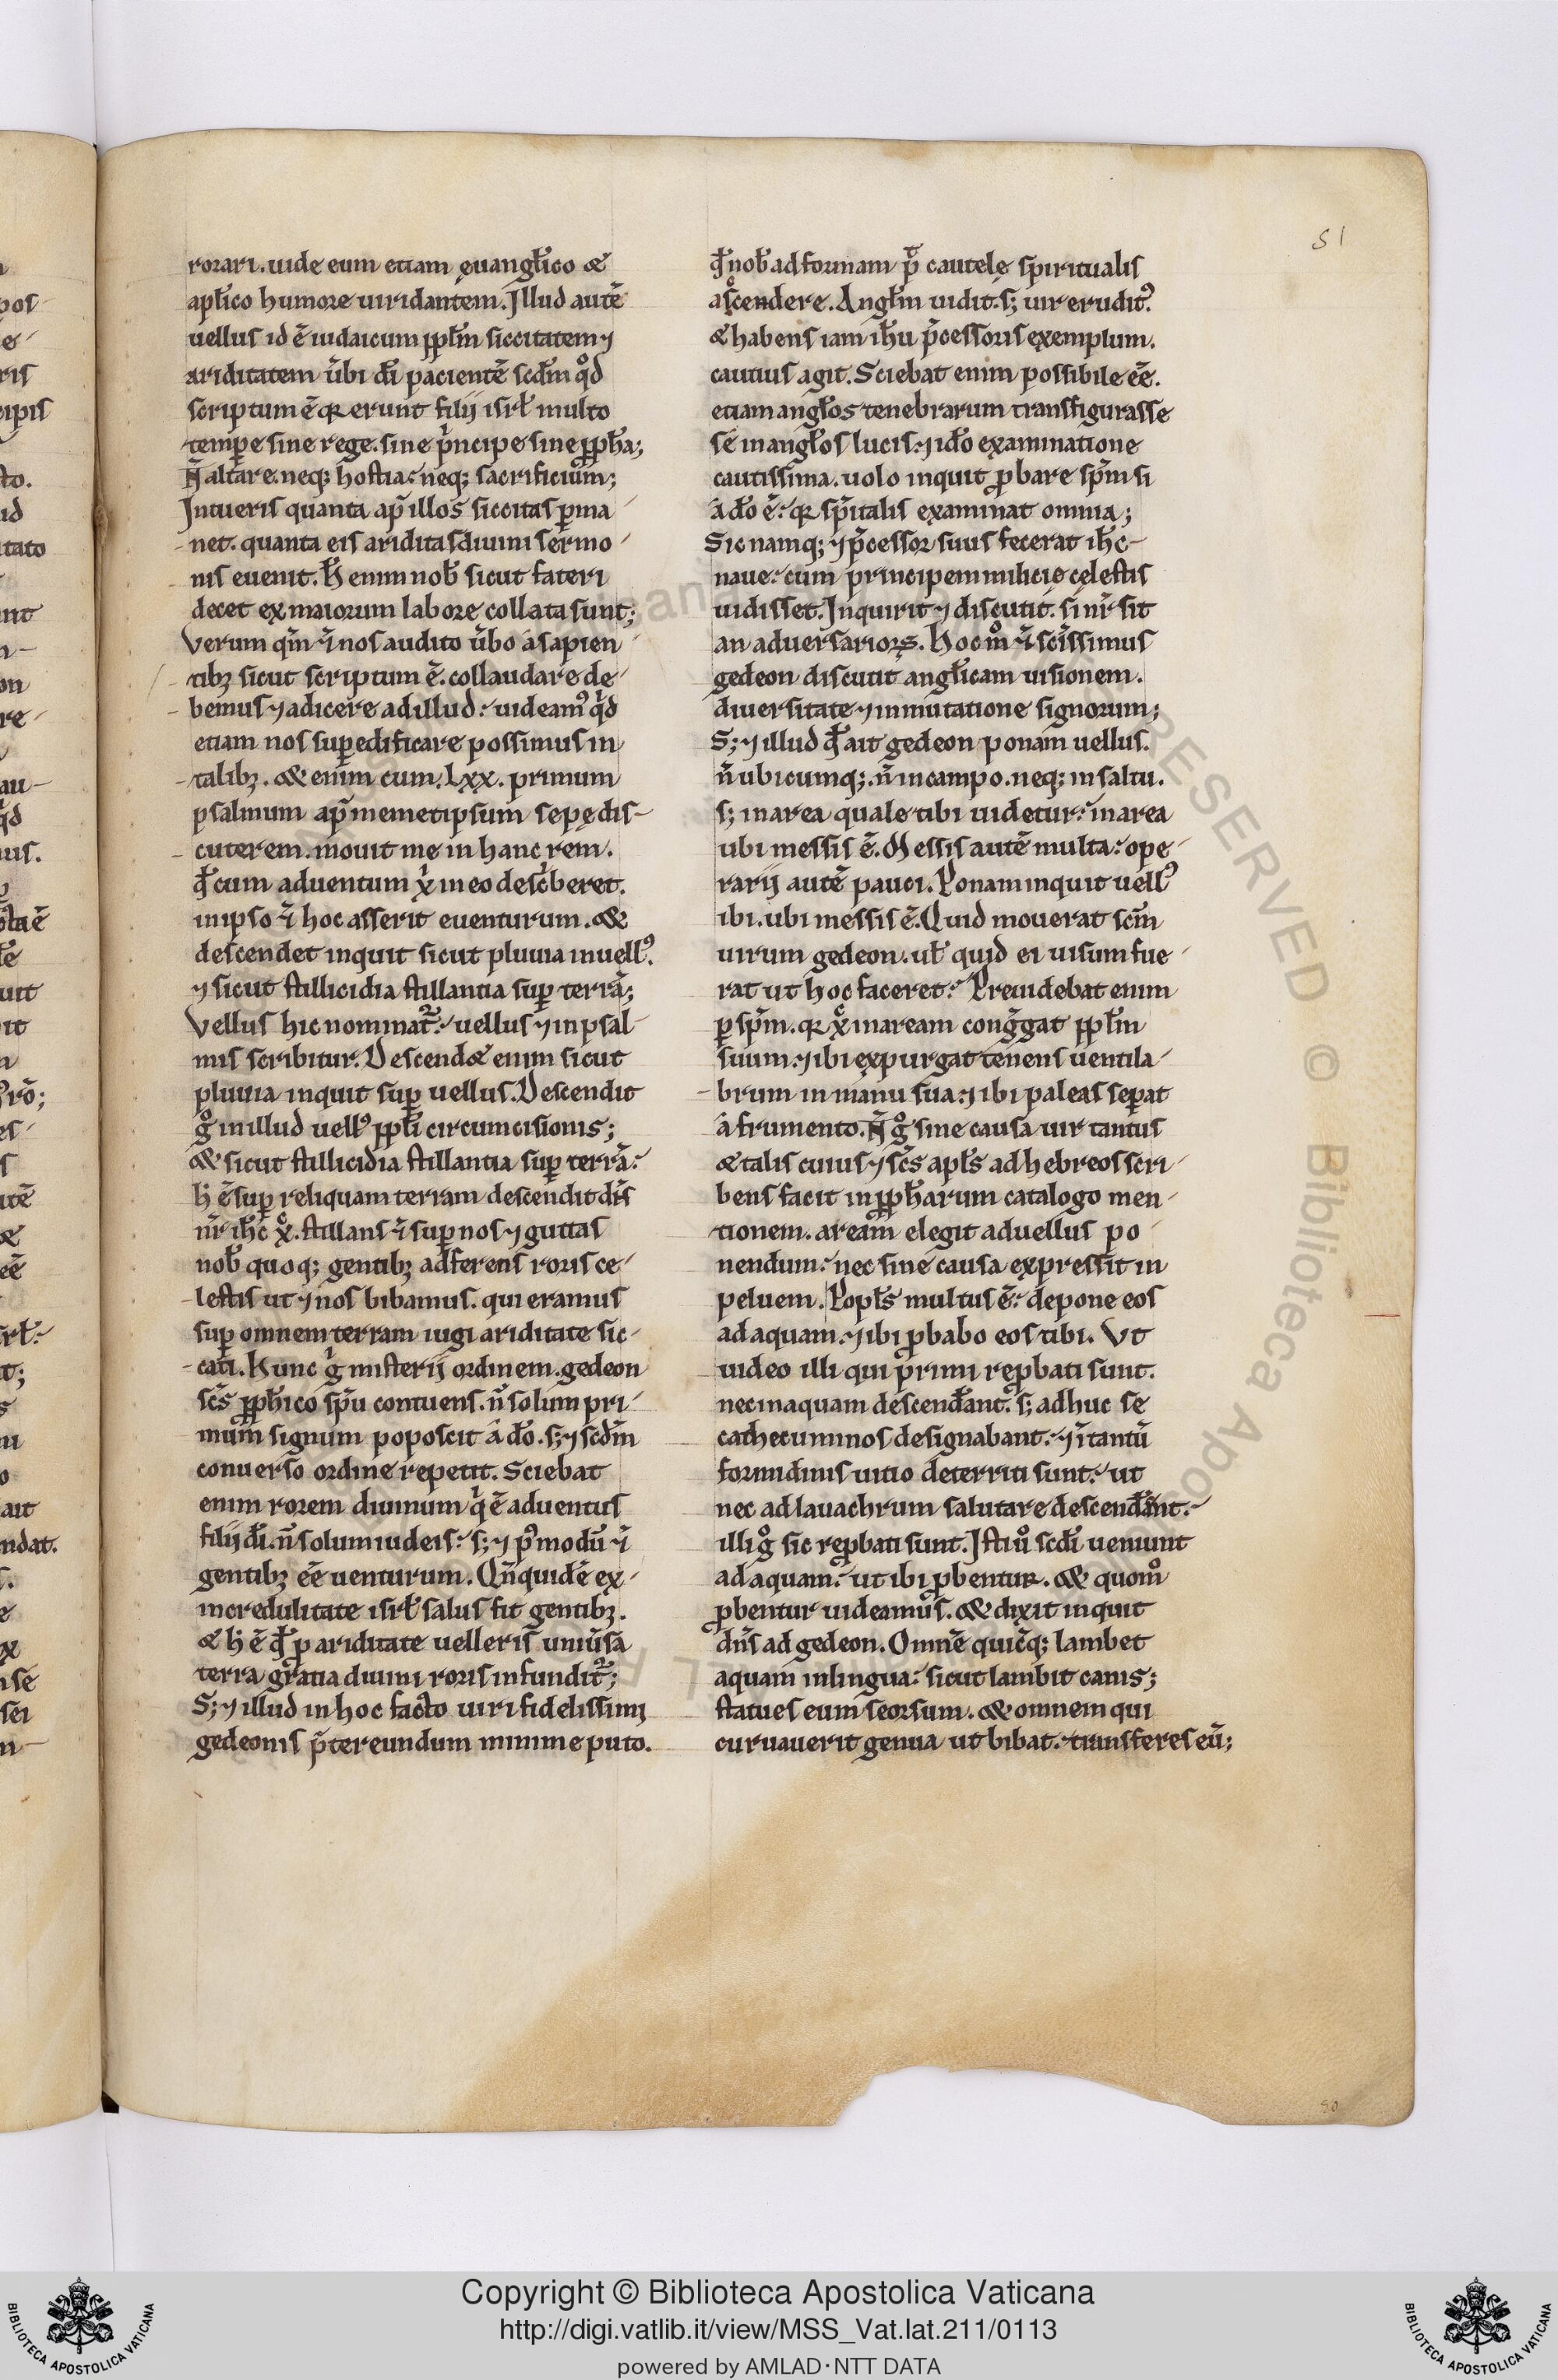 51
rorari. uide eum etiam ęuangƚico &
apƚico humore uiridantem. Illud autē
uellus id ē iudaicum ppƚm siccitatem ⁊
ariditatem ūbi dī pacientē scdm qd̊
scriptum ē qr erunt filij isrƚ multo
tempe sine rege. sine pͥncipe sine ppha;
N̄ altare. neq; hostia. neq; sacrificium;
Intueris quanta ap̄ illos siccitas ꝑma
net. quanta eis ariditas diuini sermo
nis euenit. H̄ enim nob sicut fateri
decet ex maiorum labore collata sunt;
Verum qm̄ ⁊̄ nos audito ūbo a sapien
tibꝫ sicut scriptum ē. collaudare de
bemus ⁊ adicere ad illud. uideamꝰ qͥd
etiam nos suꝑedificare possimus in
talibꝫ. & enim cum. Lxx. primum
psalmum ap̄ memetipsum sepę dis
cuterem. mouit me in hanc rem.
qđ cum aduentum xͥ in eo descͥberet.
in ipso ⁊̄ hoc asserit euenturum. &
descendet inquit sicut pluuia in uellꝰ.
⁊ sicut stillicidia stillantia suꝑ terrā;
Vellus hic nominat̄. uellus ⁊ in psal
mis scribitur. Descend& enim sicut
pluuia inquit suꝑ uellus. Descendit
gͦ in illud uellꝰ ppƚi circumcisionis;
& sicut stillicidia stillantia suꝑ terrā.
h̄ ē suꝑ reliquam terram descendit dn̄s
nr̄ ihc̄ xͨ. stillans ⁊̄ suꝑ nos ⁊ guttas
nob quoq; gentibꝫ adferens roris ce
lestis ut ⁊ nos bibamus. qui eramus
suꝑ omnem terram iugi ariditate sic
cati. Hunc gͥ misterij ordinem. gedeon
scs̄ pphico spū contuens. n̄ solum pri
mum signum poposcit a dō. s; ⁊ scdm̄
conuerso ordine repetit. Sciebat
enim rorem diuinum qͥ ē aduentus
filij dī. n̄ solum iudeis. s; ⁊ pꝰmodū ⁊̄
gentibꝫ ēē uenturum. Qn̄quidē ex
incredulitate isrƚ salus fit gentibꝫ.
& h̄ ē qđ ꝑ ariditate uelleris uniūsa
terra gratia diuini roris infundit̄;
S; ⁊ illud in hoc facto uiri fidelissimi
gedeonis p̄tereundum minime puto.
qđ nob ad formam cautelę spiritualis
ascendere. Angƚm uidit. s; uir eruditꝰ
& habens iam ihu p̄cessoris exemplum.
cautius agit. Sciebat enim possibile ēē.
etiam angƚos tenebrarum transfigurasse
se in angƚos lucis. ⁊ idō examinatione
cautissima. uolo inquit ꝓbare spm̄ si
a dō ē. qr spītalis examinat omnia;
Sic namq; ⁊ p̄cessor suus fecerat ihc̄
naue. cum principem milicię cęlestis
uidisset. Inquirit ⁊ discutit. si nr̄ sit
an aduersariorꝝ. Hoc mͦ ⁊̄ scīssimus
gedeon discutit angƚicam uisionem.
diuersitate ⁊ inmutatione signorum;
S; ⁊ illud qđ ait gedeon ponam uellus.
n̄ ubicumq;. n̄ in campo. neq; in saltu.
s; in area quale tibi uidetur. in area
ubi messis ē. Messis autē multa. ope
rarij autē pauci. Ponam inquit uellꝰ
ibi. ubi messis ē. Quid mouerat scm̄
uirum gedeon. uƚ quid ei uisum fue
rat ut hoc faceret. Preuidebat enim
ꝑ spm̄. qr xͨ in aream cong̃gat ppƚm
suum. ⁊ ibi expurgat tenens uentila
brum in manu sua. ⁊ ibi paleas seꝑat
a frumento. N̄ gͦ sine causa uir tantus
& talis cuius ⁊ scs̄ apƚs ad hebreos scri
bens facit in ppharum catalogo men
tionem. aream elegit ad uellus po
nendum. nec sine causa expressit in
peluem. Popƚs multus ē. depone eos
ad aquam. ⁊ ibi ꝓbabo eos tibi. Vt
uideo illi qui primi reꝓbati sunt.
nec in aquam descendant. s; adhuc se
cathecuminos designabant. ⁊ ita tantū
formidinis uitio deterriti sunt. ut
nec ad lauachrum salutare descendant.
illi gͦ sic reꝓbati sunt. Isti uͦ scdi ueniunt
ad aquam. ut ibi ꝓbentur. & quomͦ
ꝓbentur uideamus. & dixit inquit
dn̄s ad gedeon. Omnē quicq; lambet
aquam in lingua. sicut lambit canis;
statues eum seorsum. & omnem qui
curuauerit genua ut bibat. transferes eū;
Copyright © Biblioteca Apostolica Vaticana
http://digi.vatlib.it/view/MSS_Vat.lat.211/0113
powered by AMLAD·NTT DATA